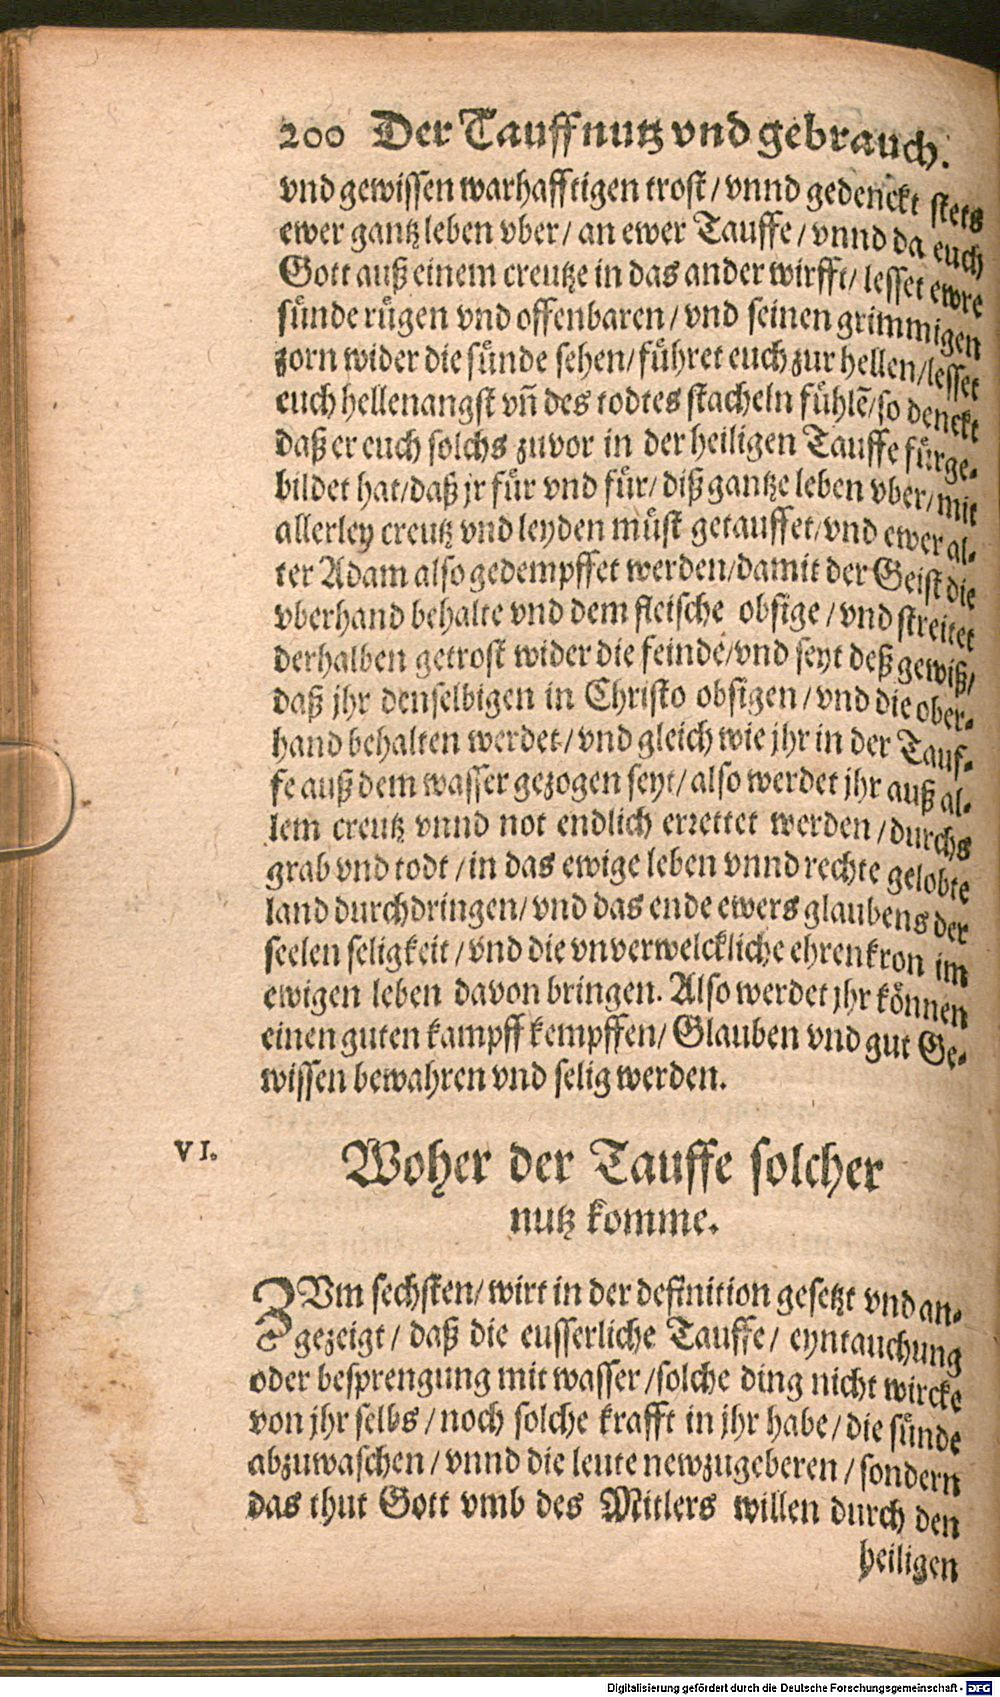 200 Der Tauff nutz vnd gebrauch.
vnd gewissen warhafftigen trost / vnnd gedenckt stets
ewer gantz leben vber / an ewer Tauffe / vnnd da euch
Gott auß einem creutze in das ander wirfft / lesset ewre
sünde rügen vnd offenbaren / vnd seinen grimmigen
zorn wider die sünde sehen / führet euch zur hellen / lesset
euch hellenangst vñ des todtes stacheln fühlẽ / so denckt
daß er euch solchs zuvor in der heiligen Tauffe fürge-
bildet hat / daß jr für vnd für / diß gantze leben vber / mit
allerley creutz vnd leyden müst getauffet / vnd ewer al-
ter Adam also gedempffet werden / damit der Geist die
vberhand behalte vnd dem fleische obsige / vnd streitet
derhalben getrost wider die feinde / vnd seyt deß gewiß /
daß jhr denselbigen in Christo obsigen / vnd die ober-
hand behalten werdet / vnd gleich wie jhr in der Tauf-
fe auß dem wasser gezogen seyt / also werdet jhr auß al-
lem creutz vnnd not endlich errettet werden / durchs
grab vnd todt / in das ewige leben vnnd rechte gelobte
land durchdringen / vnd das ende ewers glaubens der
seelen seligkeit / vnd die vnverwelckliche ehrenkron im
ewigen leben davon bringen. Also werdet jhr können
einen guten kampff kempffen / Glauben vnd gut Ge-
wissen bewahren vnd selig werden.
VI.
Woher der Tauffe solcher
nutz komme.
ZVm sechsten / wirt in der definition gesetzt vnd an-
gezeigt / daß die eusserliche Tauffe / eyntauchung
oder besprengung mit wasser / solche ding nicht wircke
von jhr selbs / noch solche krafft in jhr habe / die sünde
abzuwaschen / vnnd die leute newzugeberen / sondern
das thut Gott vmb des Mitlers willen durch den
heiligen
Digitalisierung gefördert durch die Deutsche Forschungsgemeinschaft - DFG